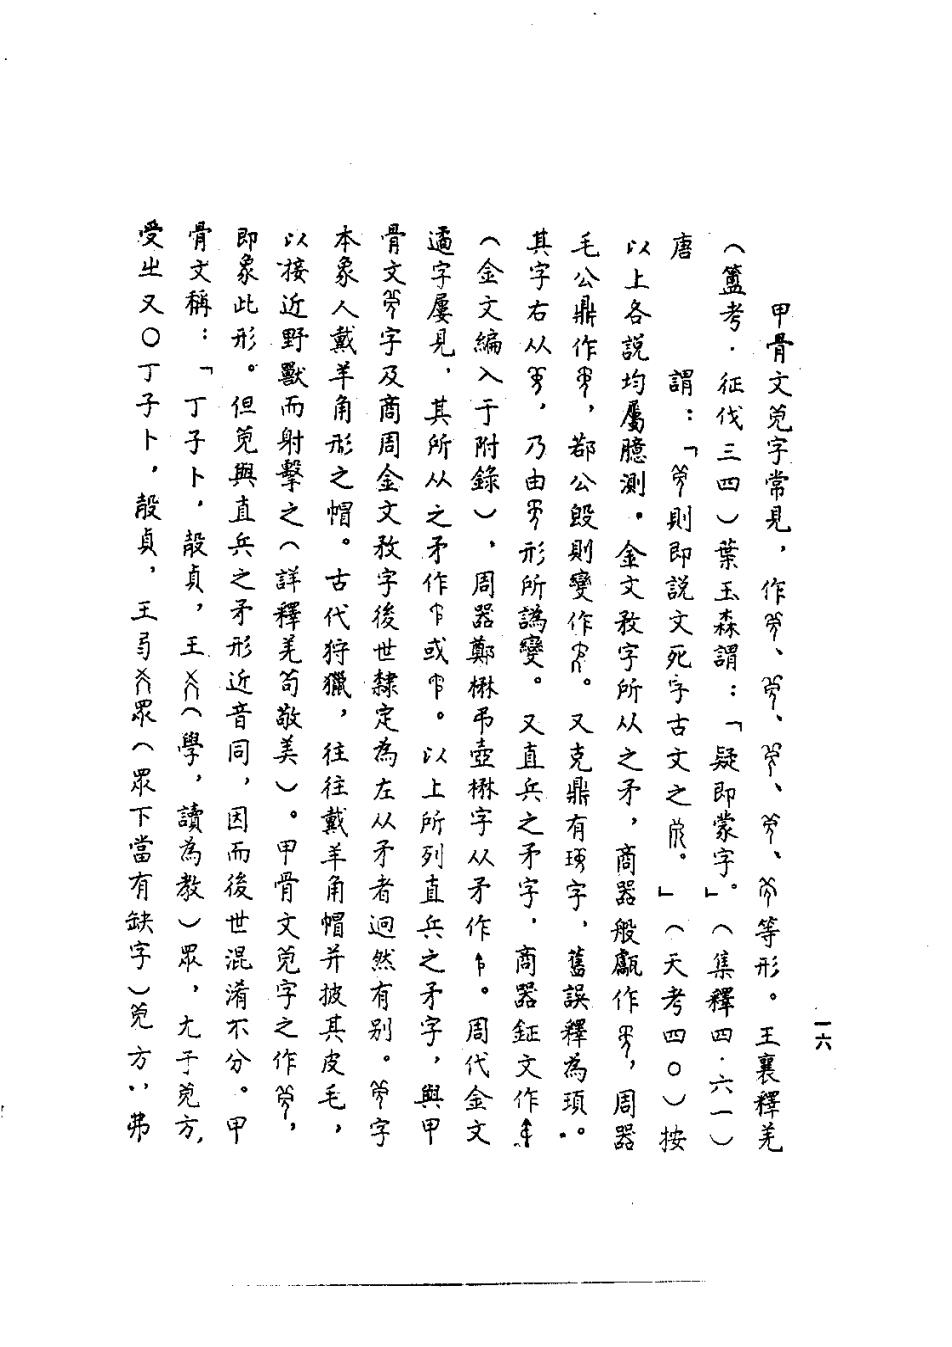 甲骨文𦫳字常見，作、、、、等形。王襄釋羌
（簠考·征伐三四）葉玉森謂：「疑即蒙字。」（集釋四·六一）
唐　　謂：「則即說文死字古文之。」（天考四〇）按
以上各說均屬臆測。金文敄字所从之矛，商器般甗作，周器
毛公鼎作，鄀公𣪘則變作。又克鼎有字，舊誤釋為頊。
其字右从，乃由形所譌變。又直兵之矛字，商器鉦文作
（金文編入于附錄），周器鄭楙弔壺楙字从矛作。周代金文
遹字屢見，其所从之矛作或。以上所列直兵之矛字，與甲
骨文字及商周金文敄字後世隸定為左从矛者迥然有別。字
本象人戴羊角形之帽。古代狩獵，往往戴羊角帽并披其皮毛，
以接近野獸而射擊之（詳釋羌茍敬美）。甲骨文字之作，
即象此形。但與直兵之矛形近音同，因而後世混淆不分。甲
骨文稱：「丁子卜，㱿貞，王（學，讀為教）眾，于方，
受㞢又〇丁子卜，㱿貞，王眾（眾下當有缺字）方，弗
一六